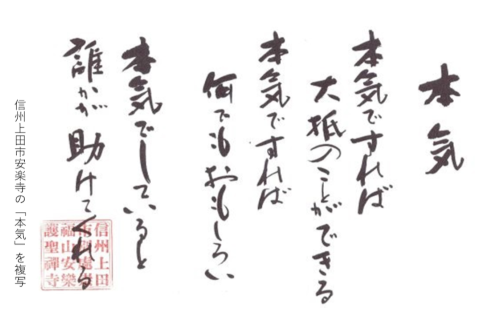 本気
本気ですれば
大抵のことができる
本気ですれば
何でもおもしろい
本気でしていると
誰かが助けてくれる
信州上田市安楽寺の「本気」を複写
信州上田
福山安樂
護聖禪寺